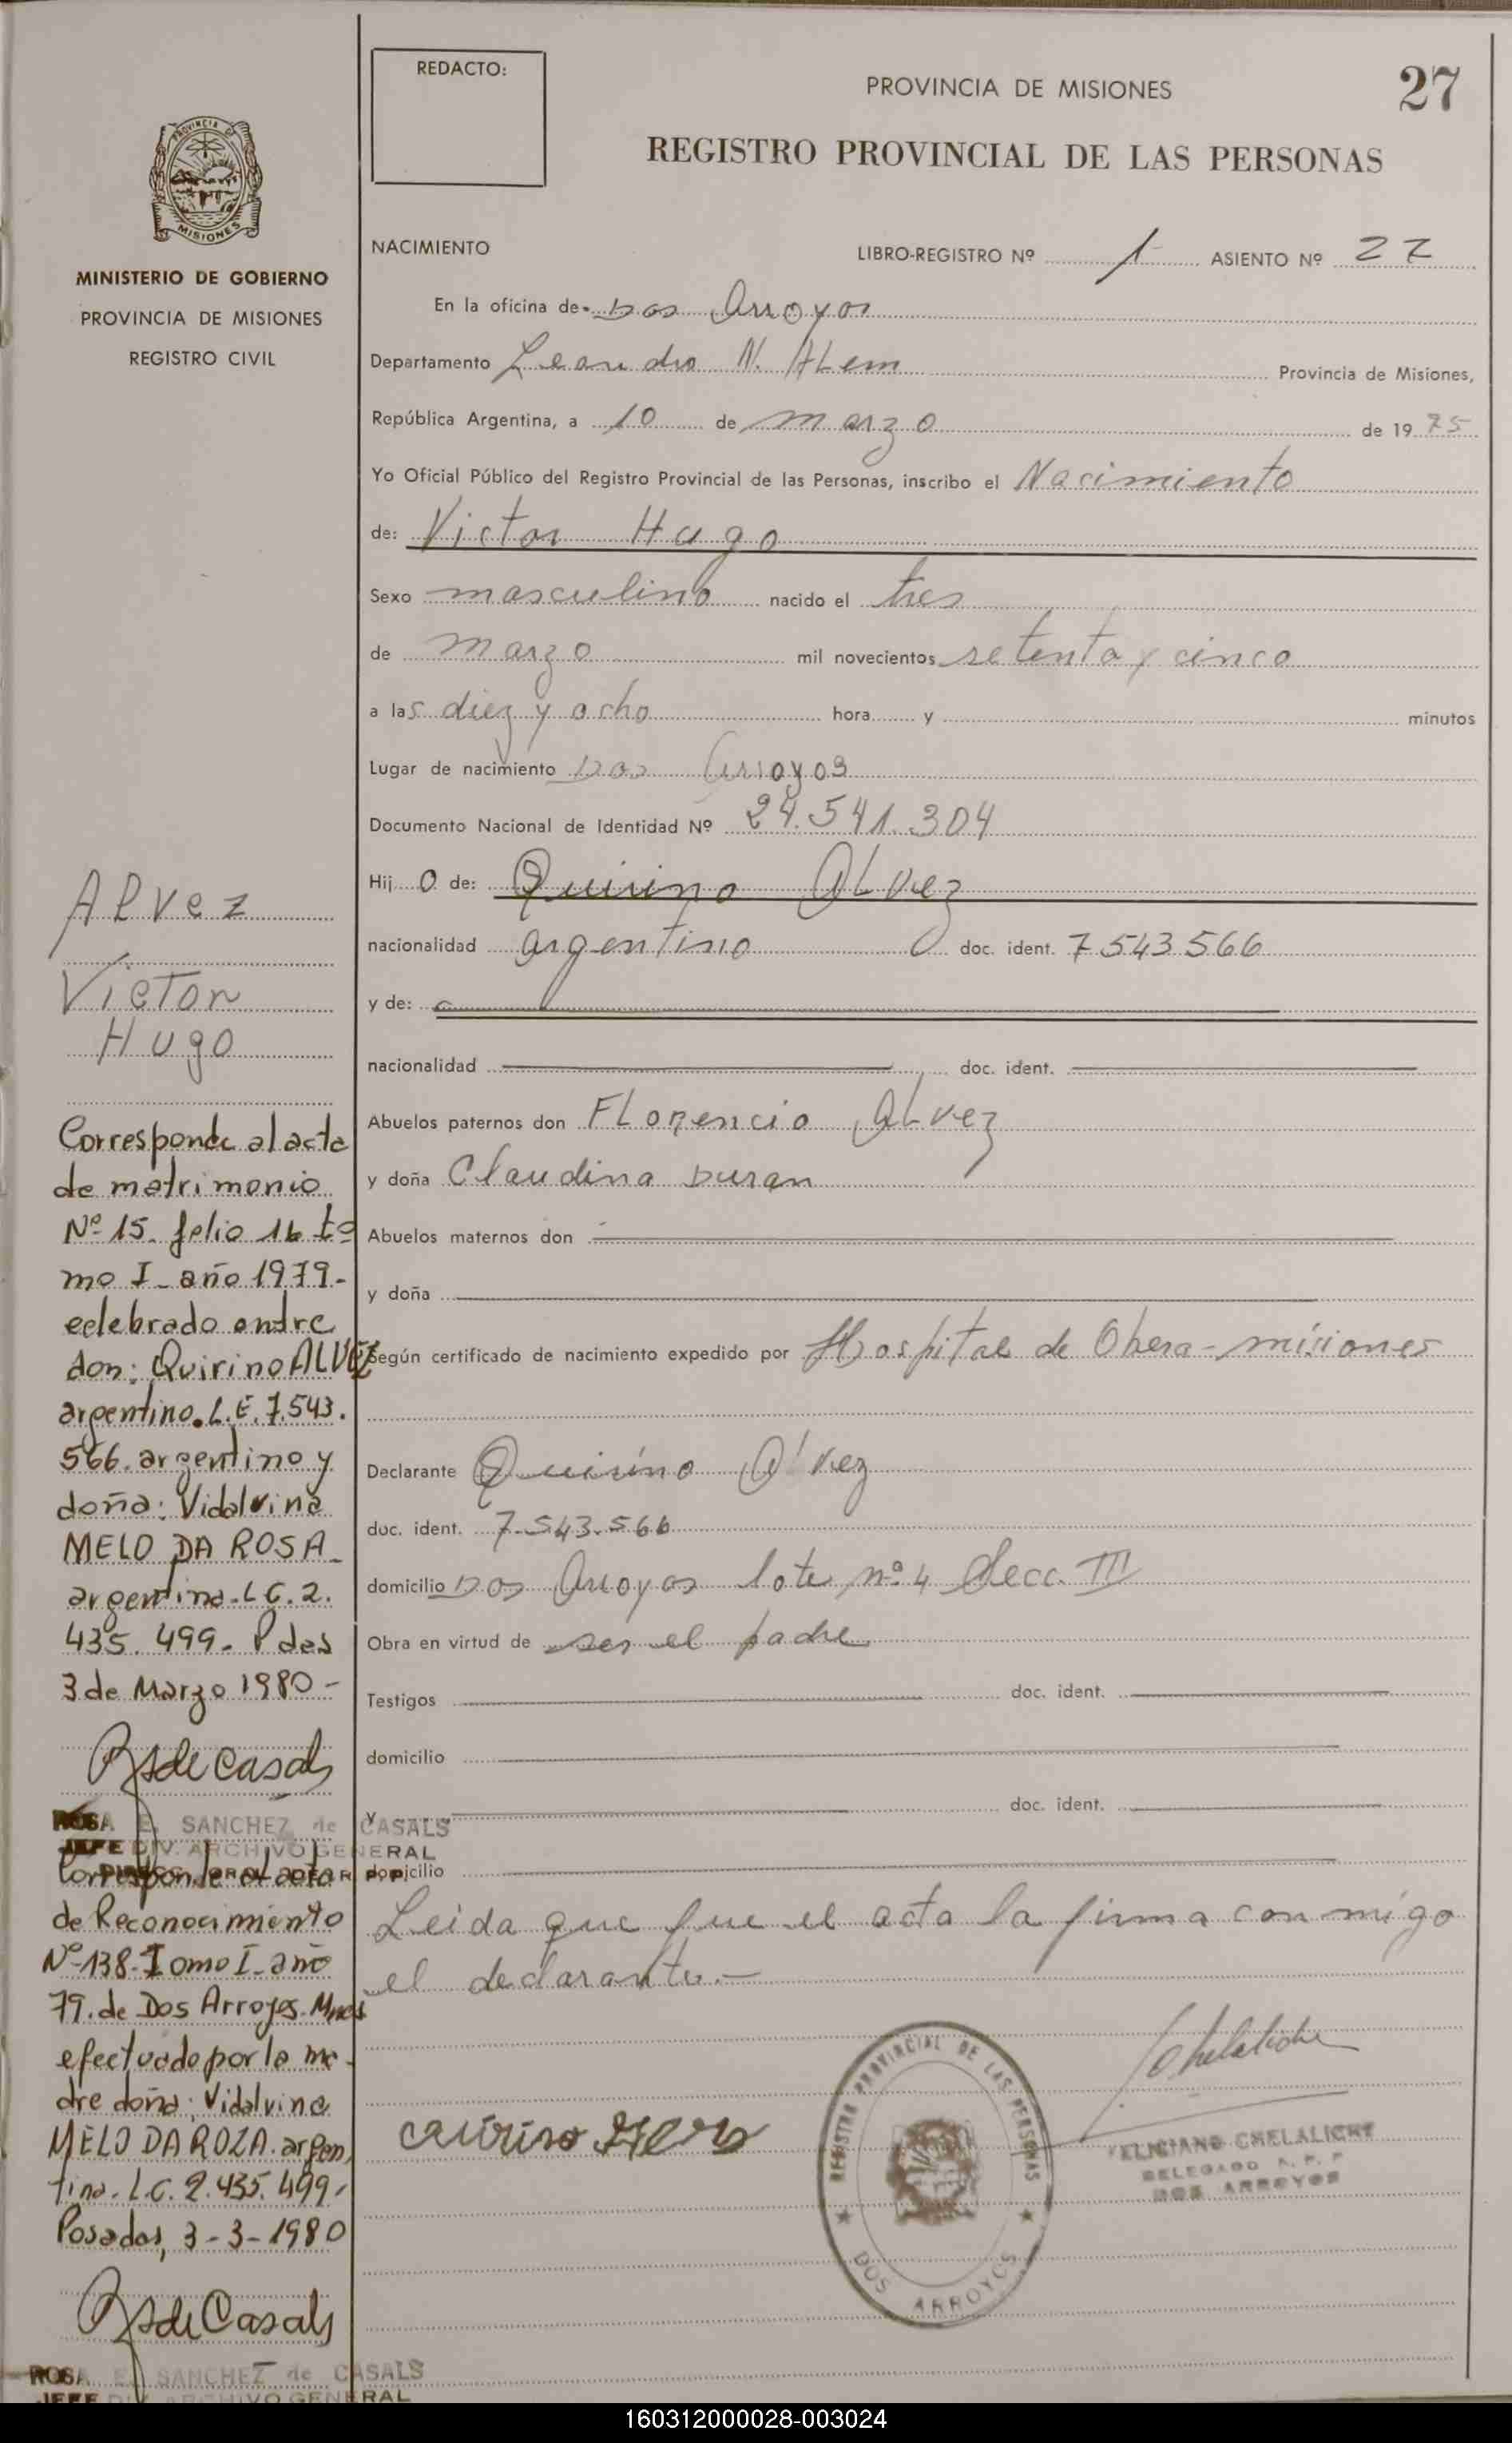 REDACTO:
PROVINCIA DE MISIONES
27
REGISTRO PROVINCIAL DE LAS PERSONAS
PROVINCIA DE
MISIONES
MINISTERIO DE GOBIERNO
PROVINCIA DE MISIONES
REGISTRO CIVIL
NACIMIENTO
LIBRO-REGISTRO Nº 1 ASIENTO Nº 27
En la oficina de Dos Arroyos
Departamento Leandro N. ALem Provincia de Misiones,
República Argentina, a 10 de marzo de 1975
Yo Oficial Público del Registro Provincial de las Personas, inscribo el Nacimiento
de: Victor Hugo
Sexo masculino nacido el tres
de marzo mil novecientos setenta y cinco
a las diez y ocho hora y minutos
Lugar de nacimiento Dos Arroyos
Documento Nacional de Identidad Nº 24.541.304
Hijo de: Quirino ALvez
nacionalidad argentino doc. ident. 7.543.566
y de:
nacionalidad doc. ident.
Abuelos paternos don FLorencio ALvez
y doña Claudina Duran
Abuelos maternos don
y doña
Según certificado de nacimiento expedido por Hospital de Obera - misiones
Declarante Quirino Alvez
doc. ident. 7.543.566
domicilio Dos Arroyos lote nº 4 Secc. III
Obra en virtud de ser el padre
Testigos doc. ident.
domicilio
y doc. ident.
domicilio
Leida que fue el acta la firma con migo
el declarante.-
REGISTRO PROVINCIAL DE LAS PERSONAS
DOS ARROYOS
FELICIANO CHELALICHE
DELEGADO R. P. P
DOS ARROYOS
Alvez
Victor
Hugo
Corresponde al acta
de matrimonio
Nº 15. folio 16 to
mo I - año 1979.-
celebrado entre
don: Quirino ALVEZ
argentino. L.E. 7.543.
566. argentino y
doña: Vidalvina
MELO DA ROSA
argentina - L C. 2.
435. 499. Pdas
3 de Marzo 1980 -
RSdeCasals
ROSA E. SANCHEZ de CASALS
JEFE DIV. ARCHIVO GENERAL
Corresponde al acta
de Reconocimiento
Nº 138 - Tomo I - año
79. de Dos Arroyos. Mnes
efectuado por la ma-
dre doña: Vidalvina
MELO DA ROZA. argen
tina. L.C. 2.435.499.
Posadas, 3-3-1980
RSdeCasals
ROSA E. SANCHEZ de CASALS
JEFE DIV. ARCHIVO GENERAL
160312000028-003024